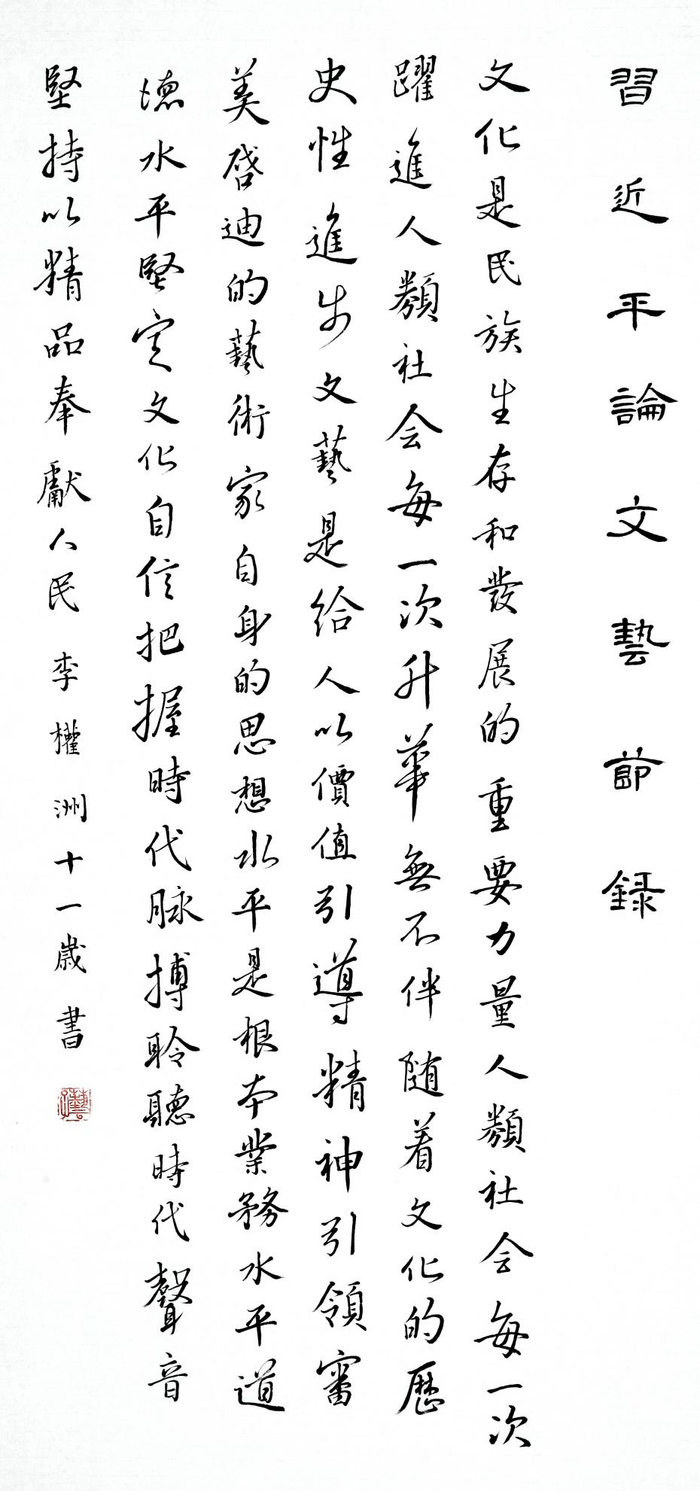 習近平論文藝節録
文化是民族生存和發展的重要力量人類社会每一次
躍進人類社会每一次升華無不伴随着文化的歷
史性進步文藝是給人以價值引導精神引領審
美啓迪的藝術家自身的思想水平是根本業務水平道
德水平堅定文化自信把握時代脉搏聆聽時代聲音
堅持以精品奉獻人民 李權洲十一歲書